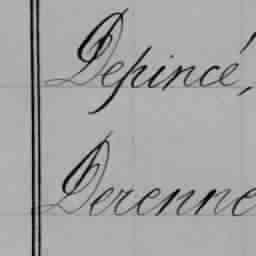 Depincé,
Derenne